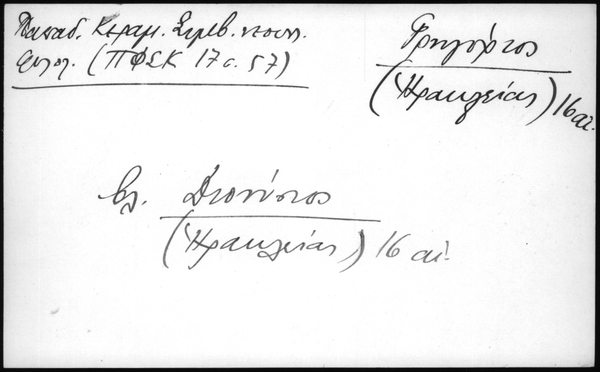 Παπαδ. Κεραμ. Συμβ. νεοελλ.
φιλολ. (ΠΦΣΚ 17 σ. 57)
Γρηγόριος
(Ἡρακλείας) 16 αἰ.
βλ. Διονύσιος
(Ἡρακλείας) 16 αἰ.